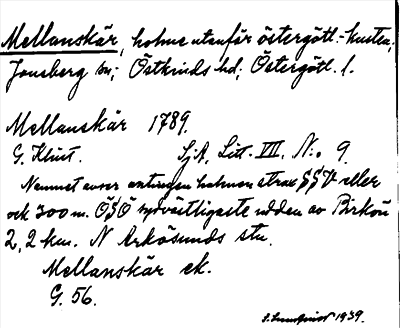 Mellanskär, holme utanför östergötl.-kusten;
Jonsberg sn; Östkinds hd; Östergötl. l.
Mellanskär 1789.
G. Klint. SjA, Litt. VII, N:o 9.
Namnet avser antingen holmen strax SSV eller
ock 300 m. OSO sydvästligaste udden av Birkön
2,2 km. N Arkösunds stn.
Mellanskär ek.
G. 56.
1939.